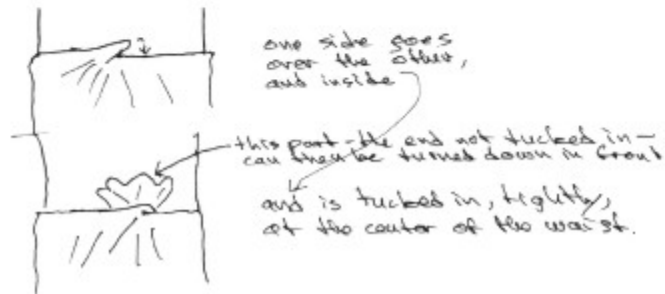 one side goes
over the other,
and inside
this part - the end not tucked in -
can then be turned down in front
and is tucked in, tightly,
at the center of the waist.